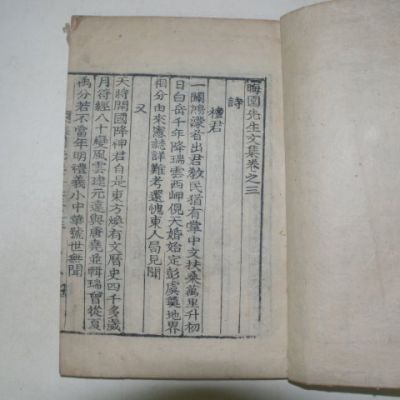 晦園先生文集卷之三
詩
檀君
一闢鴻濛首出君敎民猶有掌中文扶桑萬里升初
日白岳千年降瑞雲西岬俔天婚始定彭虞奠地界
用分由來憲誌詳難考還愧東人局見聞
又
天時開國降神君自是東方煥有文曆史四千多歲
月符經八十變風雲建元還與唐堯並輯瑞曾從夏
禹分若不當年明禮義小中華號世無聞